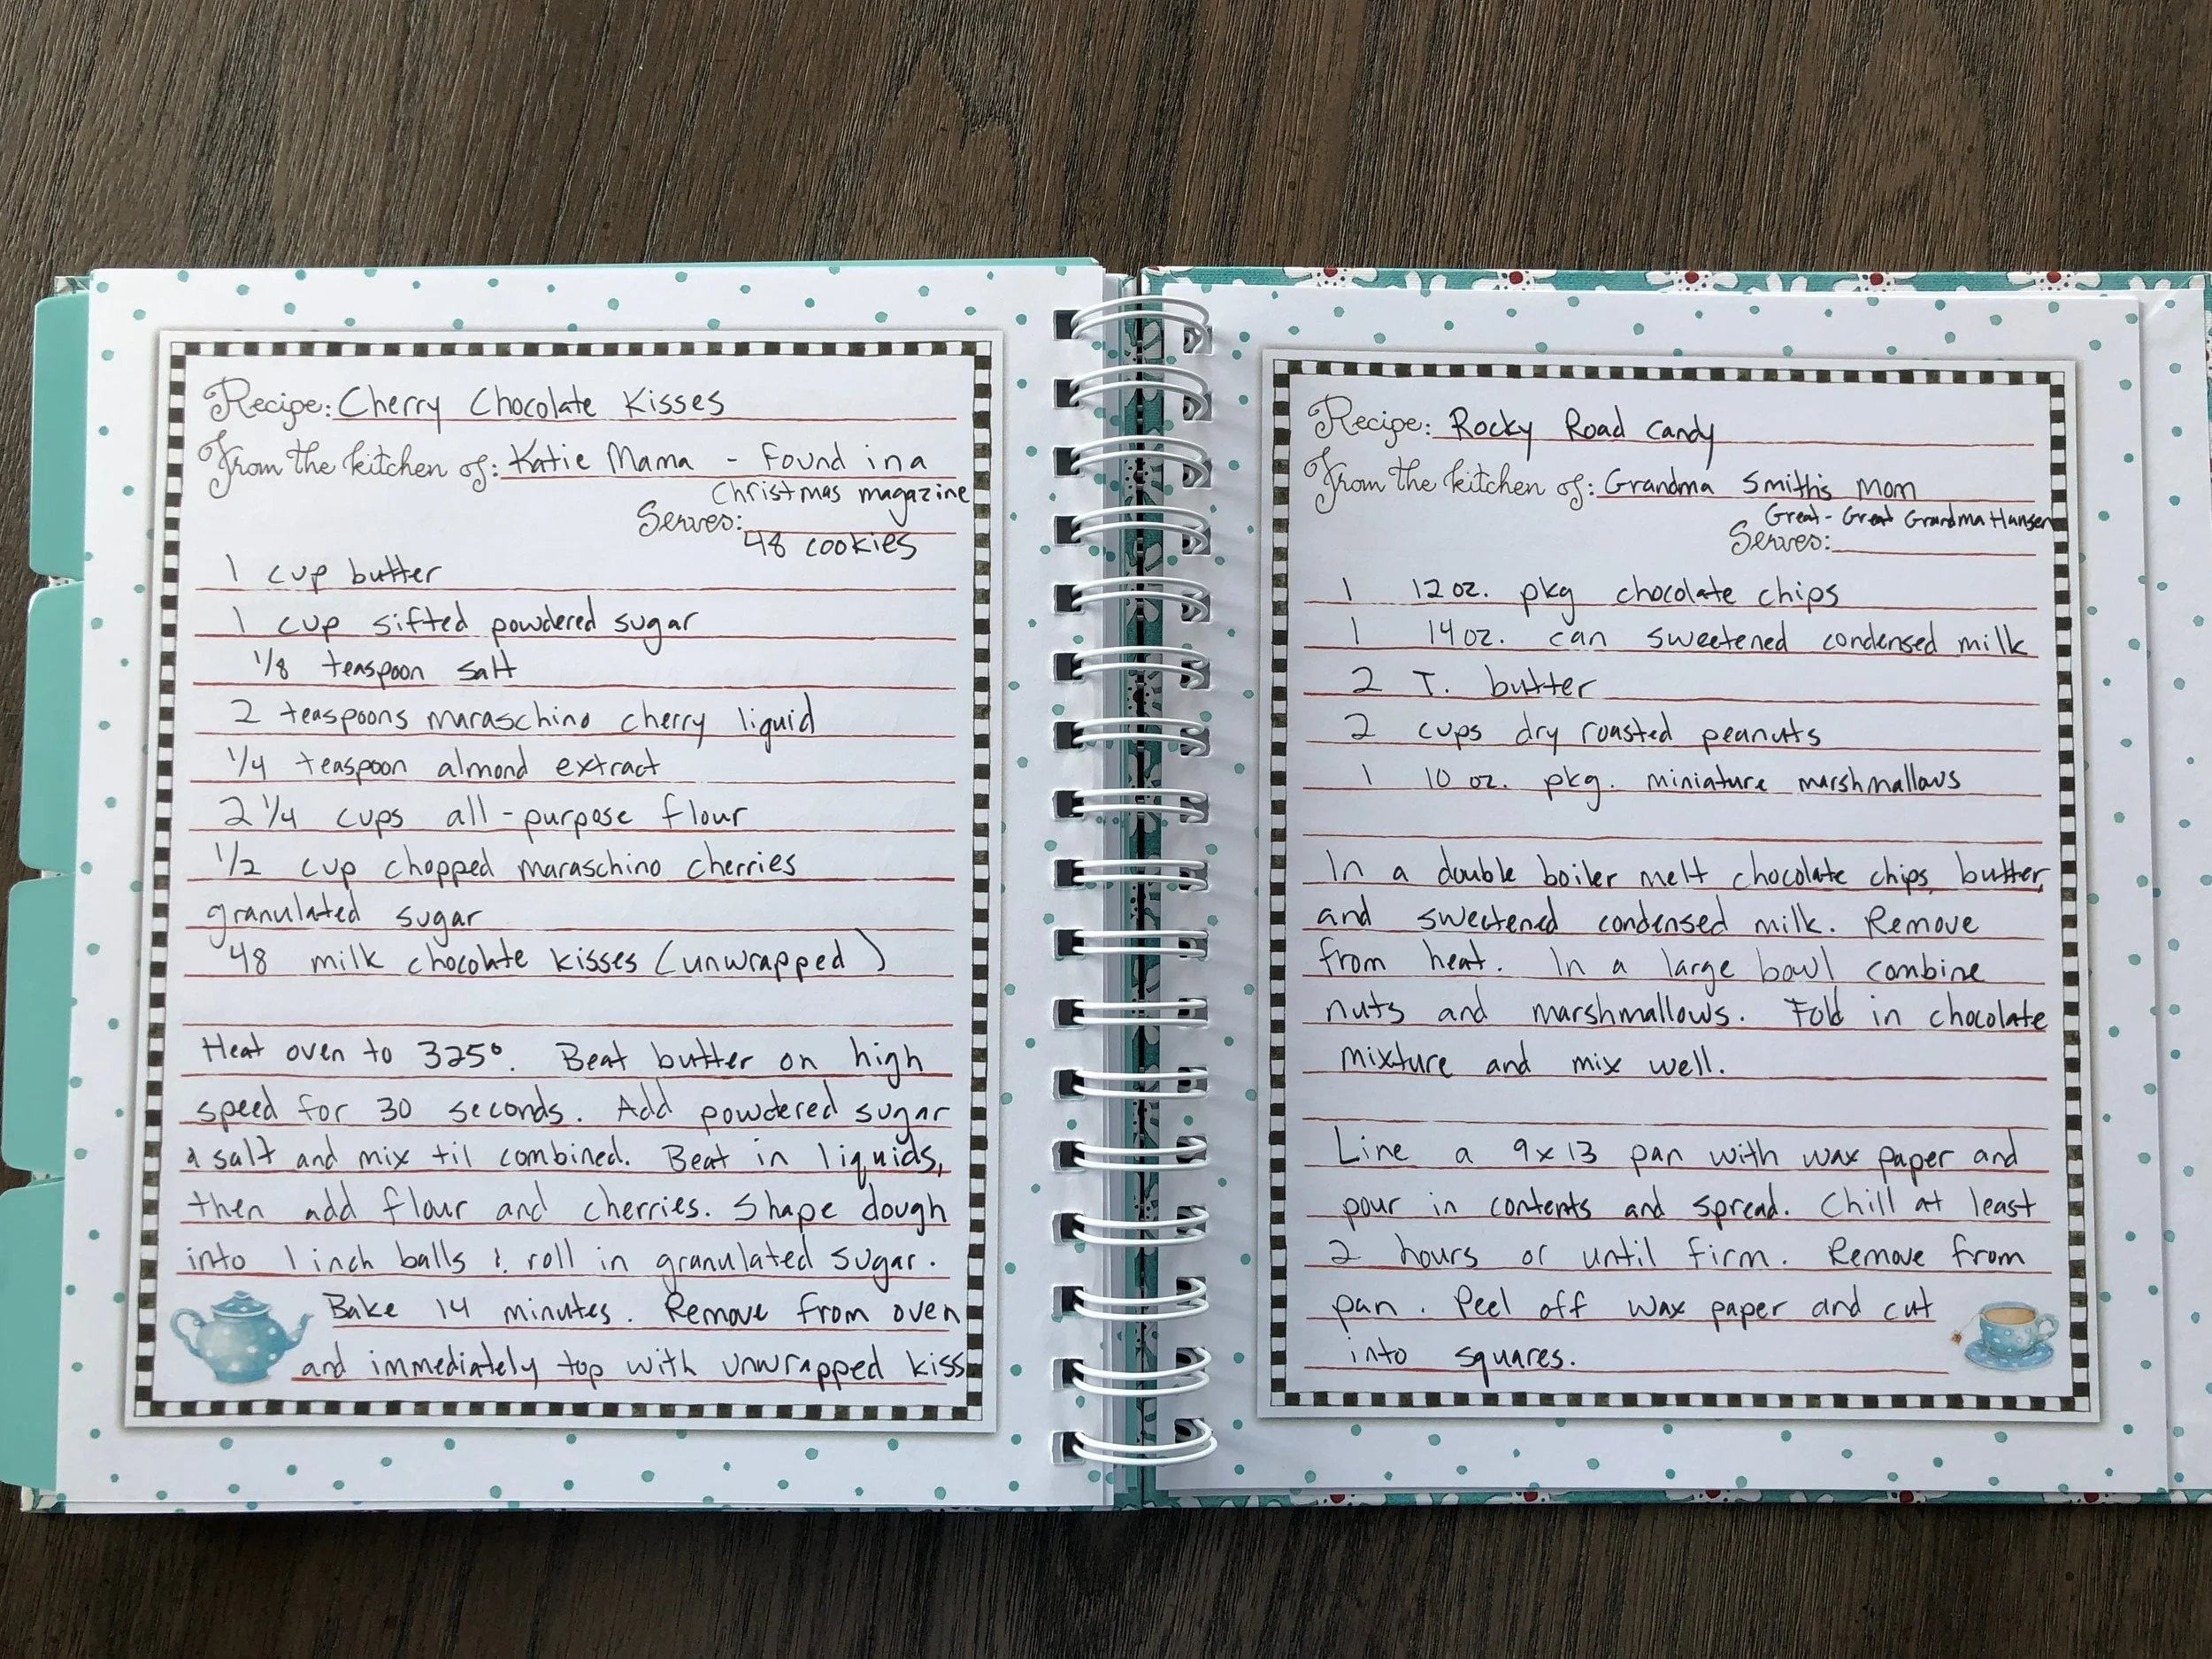 Recipe: Cherry Chocolate Kisses
From the kitchen of: Katie Mama - Found in a
Christmas magazine
Serves:
48 cookies
1 cup butter
1 cup sifted powdered sugar
1/8 teaspoon salt
2 teaspoons maraschino cherry liquid
1/4 teaspoon almond extract
2 1/4 cups all-purpose flour
1/2 cup chopped maraschino cherries
granulated sugar
48 milk chocolate kisses (unwrapped)
Heat oven to 325°. Beat butter on high
speed for 30 seconds. Add powdered sugar
& salt and mix til combined. Beat in liquids,
then add flour and cherries. Shape dough
into 1 inch balls & roll in granulated sugar.
Bake 14 minutes. Remove from oven
and immediately top with unwrapped kiss
Recipe: Rocky Road Candy
From the kitchen of: Grandma Smith's Mom
Great-Great Grandma Hansen
Serves:
1 12 oz. pkg chocolate chips
1 14 oz. can sweetened condensed milk
2 T. butter
2 cups dry roasted peanuts
1 10 oz. pkg. miniature marshmallows
In a double boiler melt chocolate chips, butter,
and sweetened condensed milk. Remove
from heat. In a large bowl combine
nuts and marshmallows. Fold in chocolate
mixture and mix well.
Line a 9x13 pan with wax paper and
pour in contents and spread. Chill at least
2 hours or until firm. Remove from
pan. Peel off wax paper and cut
into squares.